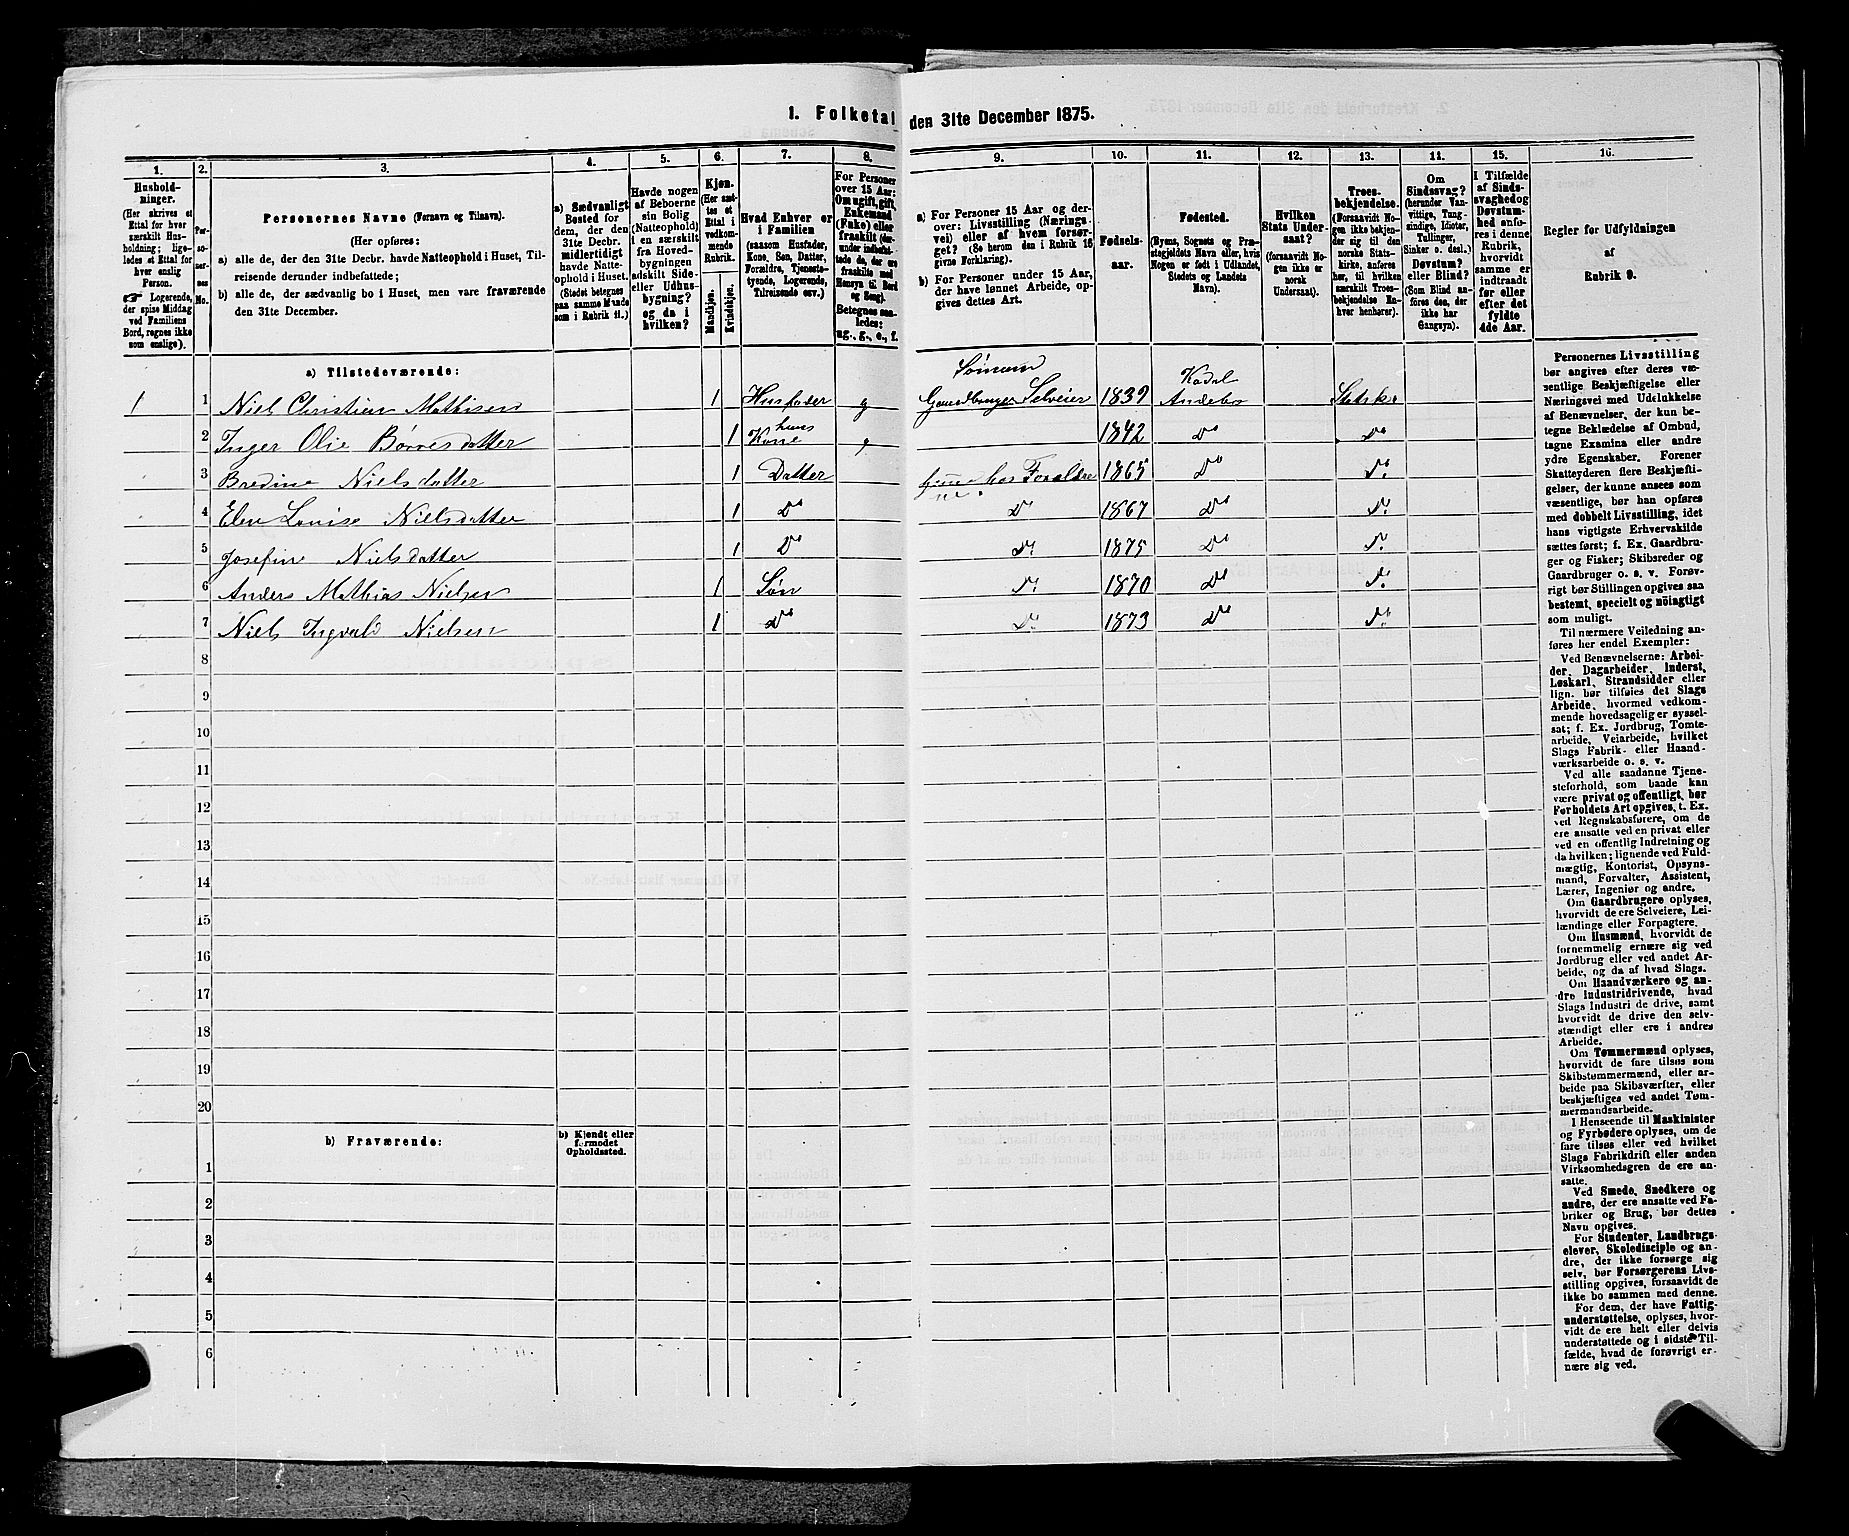 1. Folketal den 31te December 1875.
1. 2. 3. 4. 5. 6. 7. 8. 9. 10. 11. 12. 13. 14. 15. 16.
Hushold-
ninger.
(Her skrives et
Ettal for hver
særskilt Hus-
holdning; lige-
ledes et Ettal for
hver enslig
Person.
☞ Logerende,
der spise Middag
ved Familiens
Bord, regnes ikke
som enslige).
Per-
so-
ner-
nes
No.
Personernes Navne (Fornavn og Tilnavn).
(Her opføres:
a) alle de, der den 31te Decbr. havde Natteophold i Huset, Til-
reisende derunder indbefattede;
b) alle de, der sædvanlig bo i Huset, men vare fraværende
den 31te December.
a) Sædvanligt
Bosted for
dem, der den
31te Decbr.
midlertidigt
havde Natte-
ophold i Huset.
(Stedet betegnes
paa samme Maade
som i Rubrik 11.)
Havde nogen
af Beboerne
sin Bolig
(Natteophold)
i en særskilt
fra Hoved-
bygningen
adskilt Side-
eller Udhus-
bygning?
og da i
hvilken?
Kjøn.
(Her sæt-
tes et
Ettal i
vedkom-
mende
Rubrik.
Mandkjøn.
Kvindekjøn.
Hvad Enhver er
i Familien
(saasom Husfader,
Kone, Søn, Datter,
Forældre, Tjeneste-
tyende, Logerende,
Tilreisende osv.)
For Personer
over 15 Aar:
Om ugift, gift,
Enkemand
(Enke) eller
fraskilt (der-
under indbefat-
tede de, der ere
fraskilte med
Hensyn til Bord
og Seng).
Betegnes saa-
ledes:
ug., g., e., f.
a) For Personer 15 Aar og der-
over: Livsstilling (Nærings-
vei) eller af hvem forsør-
get? (Se herom den i Rubrik 16
givne Forklaring).
b) For Personer under 15 Aar,
der have lønnet Arbeide, op-
gives dettes Art.
Fødsels-
aar.
Fødested.
(Byens, Sognets og Præ-
stegjeldets Navn eller, hvis
Nogen er født i Udlandet,
Stedets og Landets
Navn).
Hvilken
Stats Under-
saat?
(forsaavidt No-
gen ikke er
norsk
Undersaat).
Troes-
bekjendelse.
(Forsaavidt No-
gen ikke bekjen-
der sig til den
norske Stats-
kirke, anføres
her, til hvilken
særskilt Troes-
bekjendelse En-
hver henhører).
Om
Sindssvag?
(herunder Van-
vittige, Tung-
sindige, Idioter,
Tullinger,
Sinker o. desl.)
Døvstum?
eller Blind?
(Som Blind an-
føres den, der
ikke har
Gangsyn).
I Tilfælde
af Sinds-
svaghed og
Døvstum-
hed anfø-
res i denne
Rubrik,
hvorvidt
samme er
indtraadt
før eller
efter det
fyldte
4de Aar.
Regler for Udfyldningen
af
Rubrik 9.
a) Tilstedeværende:
Sømand Kodal
1 1 Niel Christian Mathisen 1 Husfader g Gaardbruger Selveier 1839 Andebo Statsk.
2 Inger Olie Børresdatter 1 hans Kone g 1842 Do Do
3 Bredine Nielsdatter 1 Datter hjemme hos Forældre 1865 Do Do
4 Elen Lovise Nielsdatter 1 Do Do 1867 Do Do
5 Josefine Nielsdatter 1 Do Do 1875 Do Do
6 Anders Mathias Nielsen 1 Søn Do 1870 Do Do
7 Niels Ingvald Nielsen 1 Do Do 1873 Do Do
8
9
10
11
12
13
14
15
16
17
18
19
20
b) Fraværende:
b) Kjendt eller
formodet
Opholdssted.
1
2
3
4
5
6
Personernes Livsstilling
bør angives efter deres væ-
sentlige Beskjæftigelse eller
Næringsvei med Udelukkelse
af Benævnelser, der kun be-
tegne Beklædelse af Ombud,
tagne Examina eller andre
ydre Egenskaber. Forener
Skatteyderen flere Beskjæfti-
gelser, der kunne ansees som
væsentlige, bør han opføres
med dobbelt Livsstilling, idet
hans vigtigste Erhvervskilde
sættes først; f. Ex. Gaardbru-
ger og Fisker; Skibsreder og
Gaardbruger o. s. v. Forøv-
rigt bør Stillingen opgives saa
bestemt, specielt og nøiagtigt
som muligt.
Til nærmere Veiledning an-
føres her endel Exempler:
Ved Benævnelserne: Arbei-
der, Dagarbeider, Inderst,
Løskarl, Strandsidder eller
lign. bør tilføies det Slags
Arbeide, hvormed vedkom-
mende hovedsagelig er syssel-
sat; f. Ex. Jordbrug, Tomte-
arbeide, Veiarbeide, hvilket
Slags Fabrik- eller Haand-
værksarbeide o. s. v.
Ved alle saadanne Tjene-
steforhold, som baade kan
være privat og offentligt, bør
Forholdets Art opgives, t. Ex.
ved Regnskabsførere, om de
ere ansatte ved en privat eller
ved en offentlig Indretning og
da hvilken; lignende ved Fuld-
mægtig, Kontorist, Opsyns-
mand, Forvalter, Assistent,
Lærer, Ingeniør og andre.
Om Gaardbrugere oplyses,
hvorvidt de ere Selveiere, Lei-
lændinge eller Forpagtere.
Om Husmænd, hvorvidt de
fornemmelig ernære sig ved
Jordbrug eller ved andet Ar-
beide, og da af hvad Slags.
Om Haandværkere og an-
dre Industridrivende, hvad
Slags Industri de drive, samt
hvorvidt de drive den selv-
stændigt eller ere i andres
Arbeide.
Om Tømmermænd oplyses,
hvorvidt de fare tilsøs som
Skibstømmermænd, eller ar-
beide paa Skibsværfter, eller
beskjæftiges ved andet Tøm-
mermandsarbeide.
I Henseende til Maskinister
og Fyrbødere oplyses, om de
fare tilsøs eller ved hvilket
Slags Fabrikdrift eller anden
Virksomhedsgren de ere an-
satte.
Ved Smede, Snedkere og
andre, der ere ansatte ved Fa-
briker og Brug, bør dettes
Navn opgives.
For Studenter, Landbrugs-
elever, Skoledisciple og an-
dre, der ikke forsørge sig
selv, bør Forsørgerens Livs-
stilling opgives, forsaavidt de
ikke bo sammen med denne.
For dem, der have Fattig-
understøttelse, oplyses, hvor-
vidt de ere helt eller delvis
understøttede og i sidste Til-
fælde, hvad de forøvrigt er-
nære sig ved.